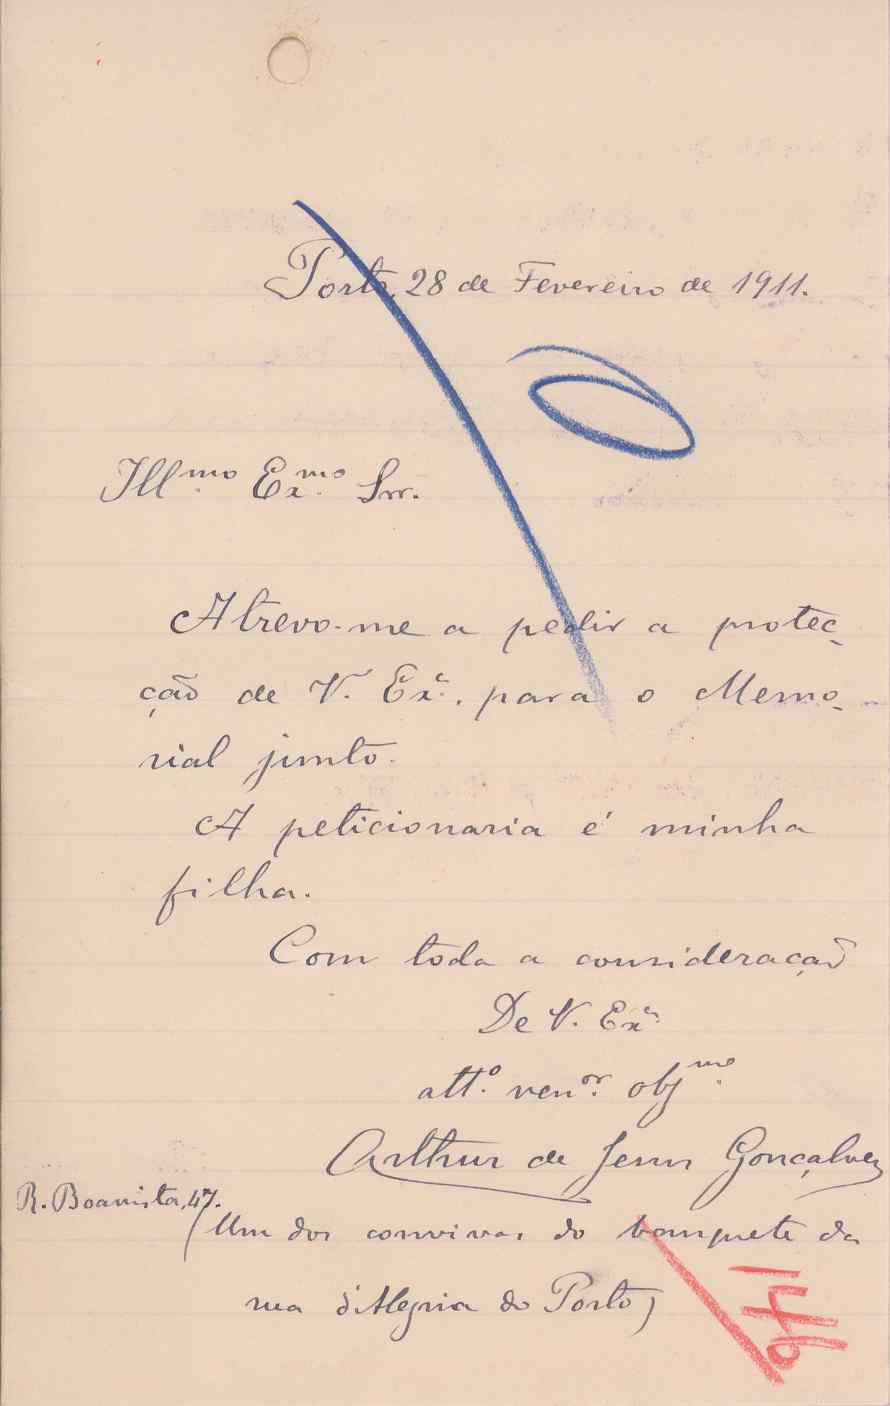 Porto, 28 de Fevereiro de 1911.
Ill.mo Ex.mo Snr.
Atrevo-me a pedir a protec-
ção de V. Ex.ª, para o Memo-
rial junto.
A peticionaria é minha
filha.
Com toda a consideração
De V. Exª
att.º ven.or obj.mo
Arthur de Jesus Gonçalves
R. Boavista, 47.
(Um dos convivas do banquete da
rua d'Alegria do Porto)